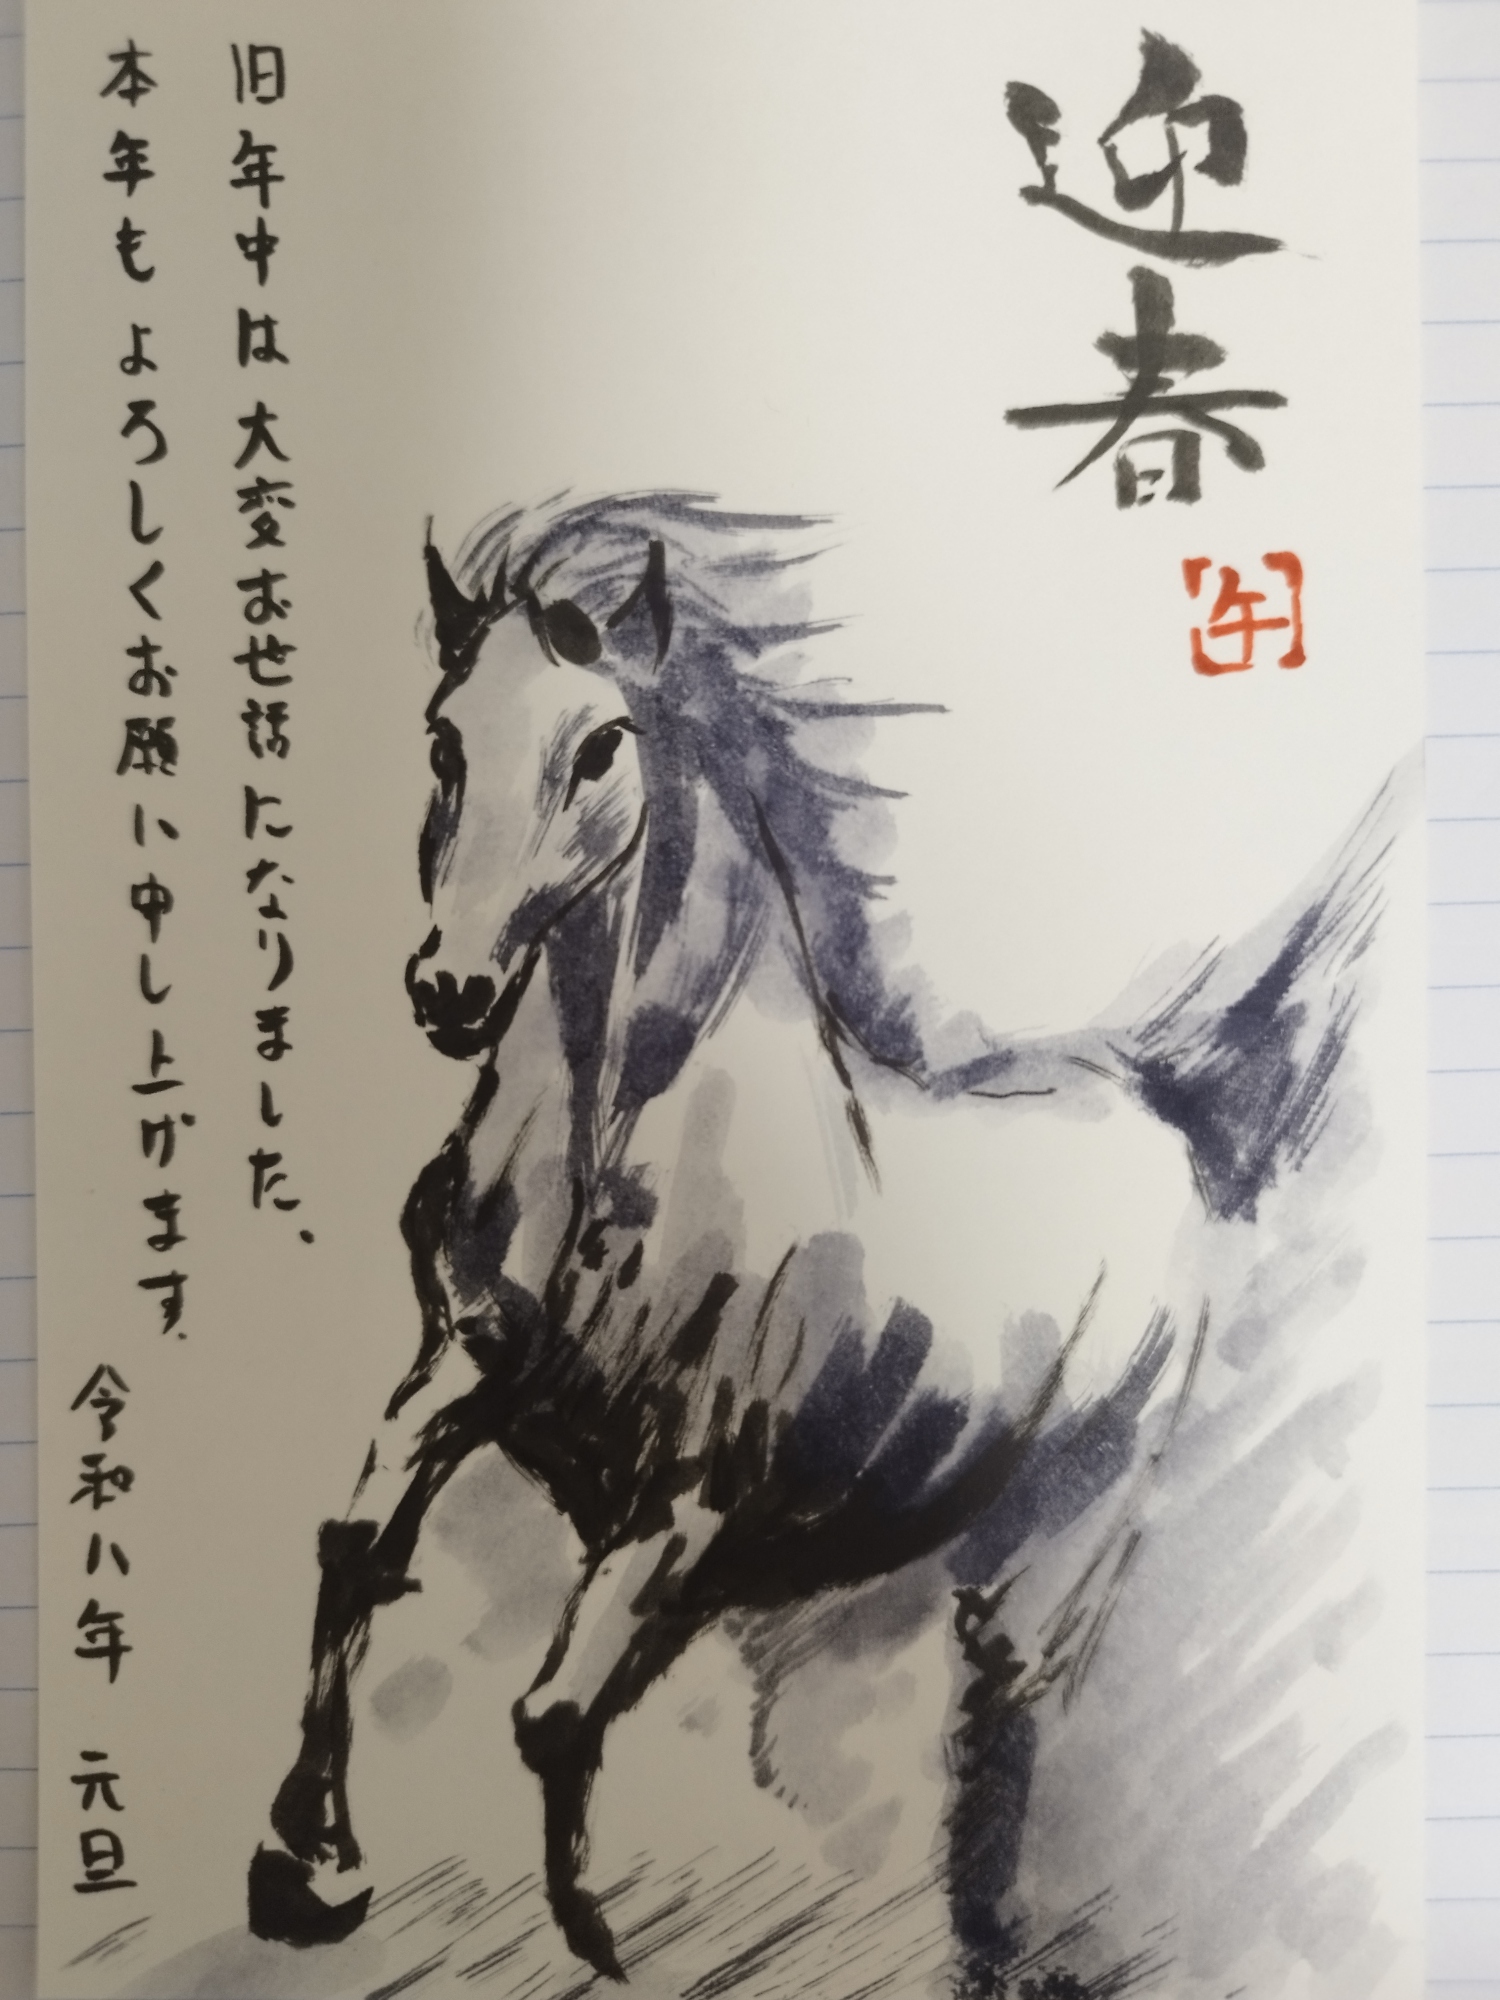 迎春
午
旧年中は大変お世話になりました。
本年もよろしくお願い申し上げます。
令和八年 元旦